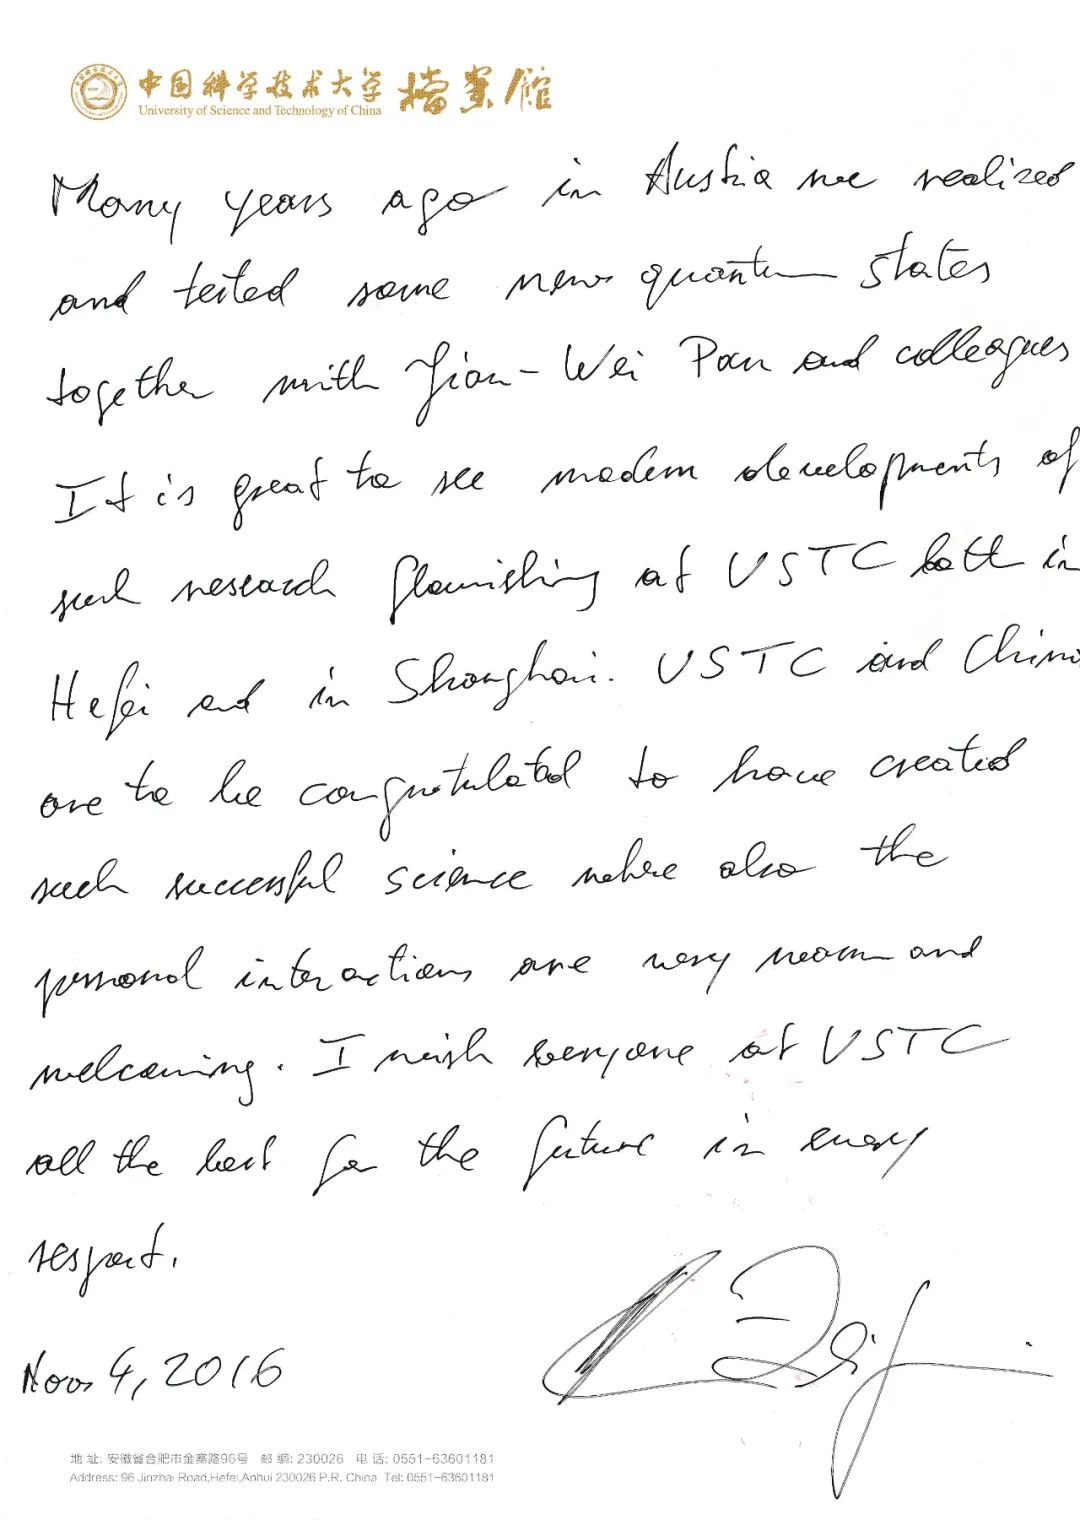 中国科学技术大学 档案馆
University of Science and Technology of China
Many years ago in Austria we realized
and tested some new quantum states
together with Jian-Wei Pan and colleagues
It is great to see modern developments of
such research flourishing at USTC both in
Hefei and in Shanghai. USTC and China
are to be congratulated to have created
such successful science where also the
personal interactions are very warm and
welcoming. I wish everyone at USTC
all the best for the future in every
respect.
Nov 4, 2016
地 址: 安徽省合肥市金寨路96号 邮 编: 230026 电 话: 0551-63601181
Address: 96 Jinzhai Road,Hefei,Anhui 230026 P.R. China Tel: 0551-63601181